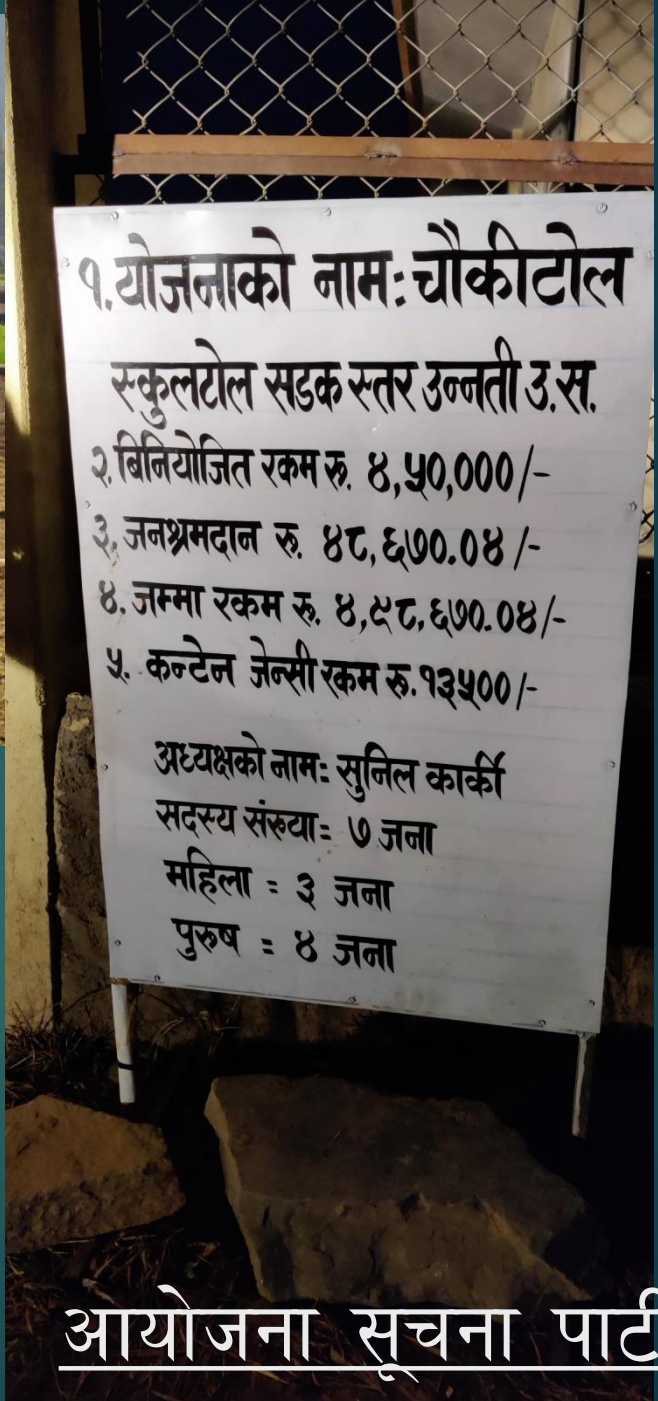 १.योजनाको नाम: चौकीटोल
स्कुलटोल सडक स्तर उन्नती उ.स.
२. बिनियोजित रकम रू. ४,५०,०००/-
३. जनश्रमदान रू. ४८,६७०.०४/-
४. जम्मा रकम रू. ४,९८,६७०.०४/-
५. कन्टेन जेन्सी रकम रू.१३५००/-
अध्यक्षको नाम: सुनिल कार्की
सदस्य संख्या= ७ जना
महिला = ३ जना
पुरुष = ४ जना
आयोजना सूचना पाटी